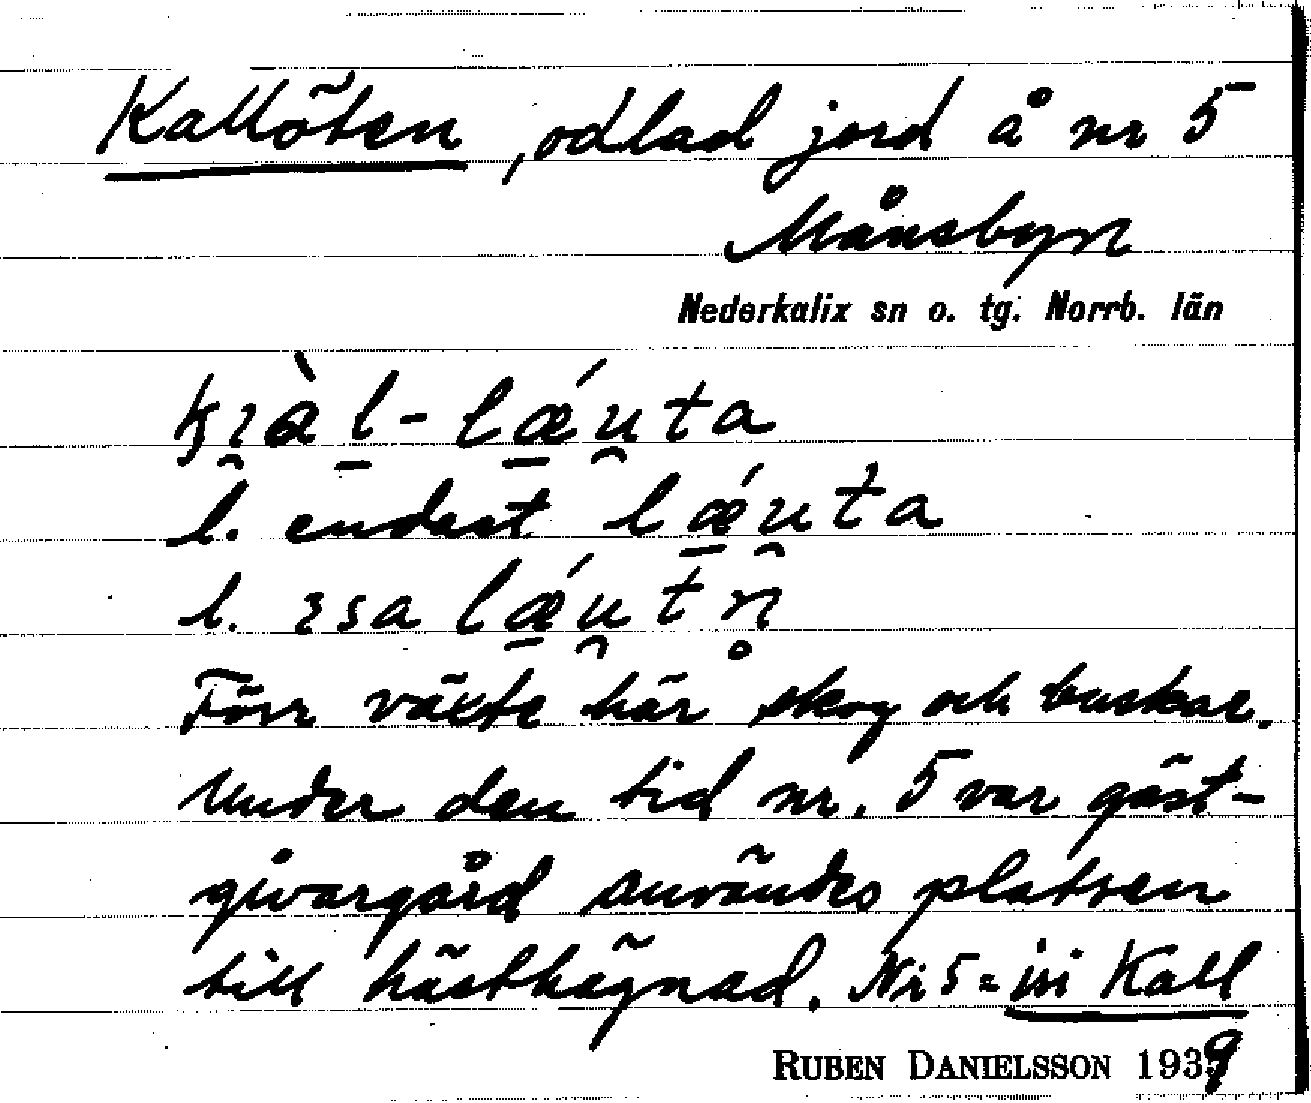 Kallöten, odlad jord å nr 5
Månsbyn
Nederkalix sn o. tg. Norrb. län
l. endast lǽ̱u̯ta
l. ɪsa lǽ̱u̯tn̥
Förr växte här skog och buskar.
Under den tid nr. 5 var gäst-
givargård användes platsen
till hästhägnad. Nr 5 = in Kall
RUBEN DANIELSSON 1939